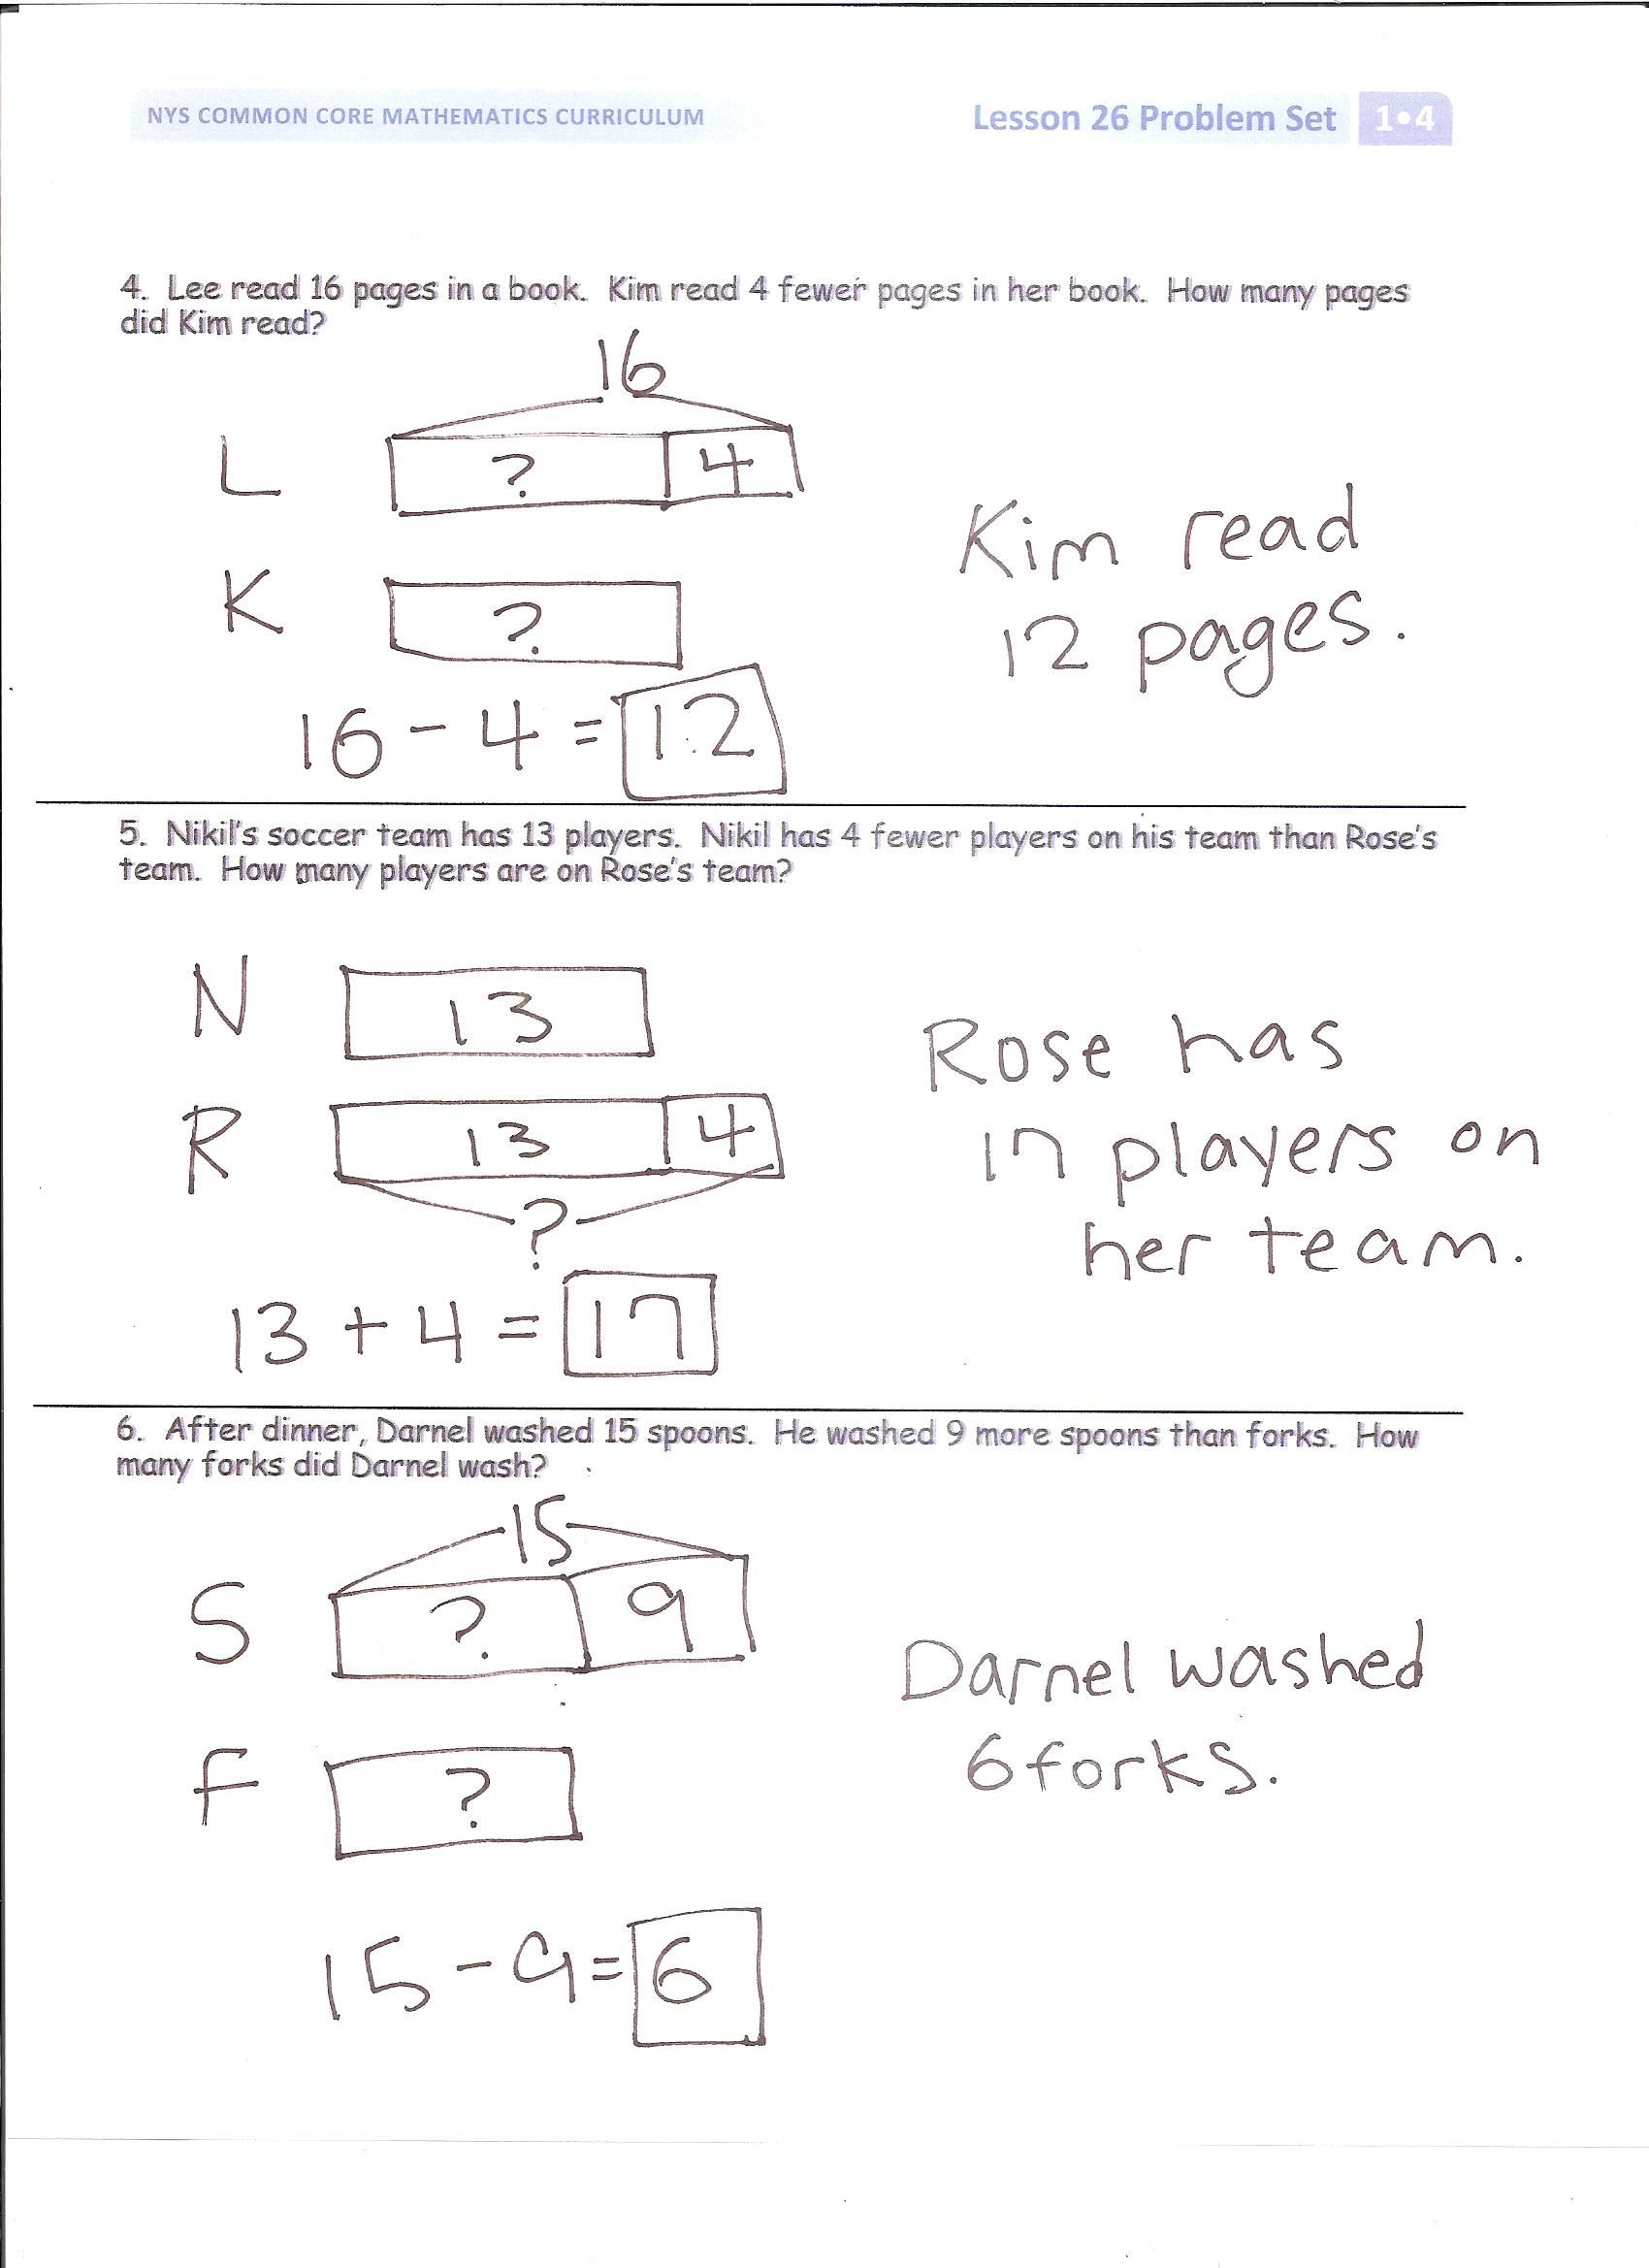 NYS COMMON CORE MATHEMATICS CURRICULUM
Lesson 26 Problem Set 1•4
4. Lee read 16 pages in a book. Kim read 4 fewer pages in her book. How many pages
did Kim read?
16
L ? 4
K ?
Kim read
12 pages.
16 - 4 = 12
5. Nikil's soccer team has 13 players. Nikil has 4 fewer players on his team than Rose's
team. How many players are on Rose's team?
N 13
R 13 4
?
Rose has
17 players on
her team.
13 + 4 = 17
6. After dinner, Darnel washed 15 spoons. He washed 9 more spoons than forks. How
many forks did Darnel wash?
15
S ? 9
F ?
Darnel washed
6 forks.
15 - 9 = 6